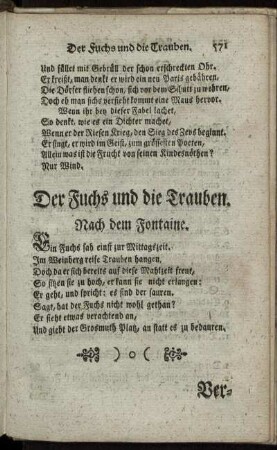 Der Fuchs und die Trauben. 571
Und füllet mit Gebrüll der schon erschreckten Ohr.
Er kreißt, man denkt er wird ein neu Paris gebähren.
Die Dörfer fliehen schon, sich vor dem Schutt zu wehren,
Doch eh man sichs versieht kommt eine Maus hervor.
Wenn ihr bey dieser Fabel lachet,
So denkt wie es ein Dichter machet,
Wenn er der Riesen Krieg, den Sieg des Zevs beginnt.
Er singt, er wird im Geist, zum grössesten Poeten,
Allein was ist die Frucht von seinen Kindesnöthen?
Nur Wind.
Der Fuchs und die Trauben.
Nach dem Fontaine.
Ein Fuchs sah einst zur Mittagszeit.
Im Weinberg reife Trauben hangen,
Doch da er sich bereits auf diese Mahlzeit freut,
So sitzen sie zu hoch, er kann sie nicht erlangen:
Er geht, und spricht: es sind der sauren.
Sagt, hat der Fuchs nicht wohl gethan?
Er sieht etwas verachtend an,
Und giebt der Grosmuth Platz, an statt es zu bedauren.
Ver-